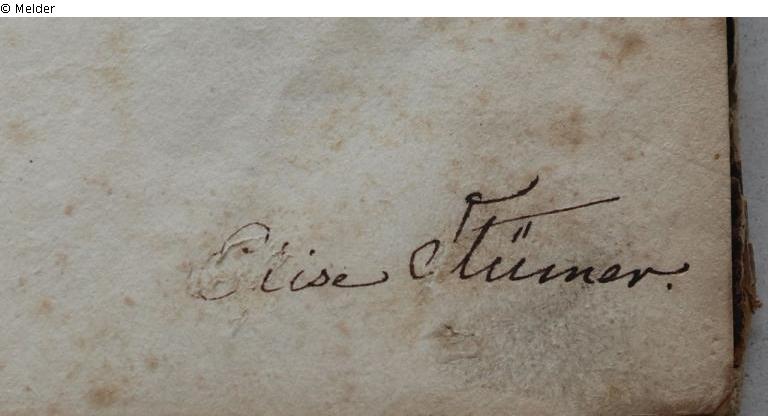 © Melder
Elise Stümer.